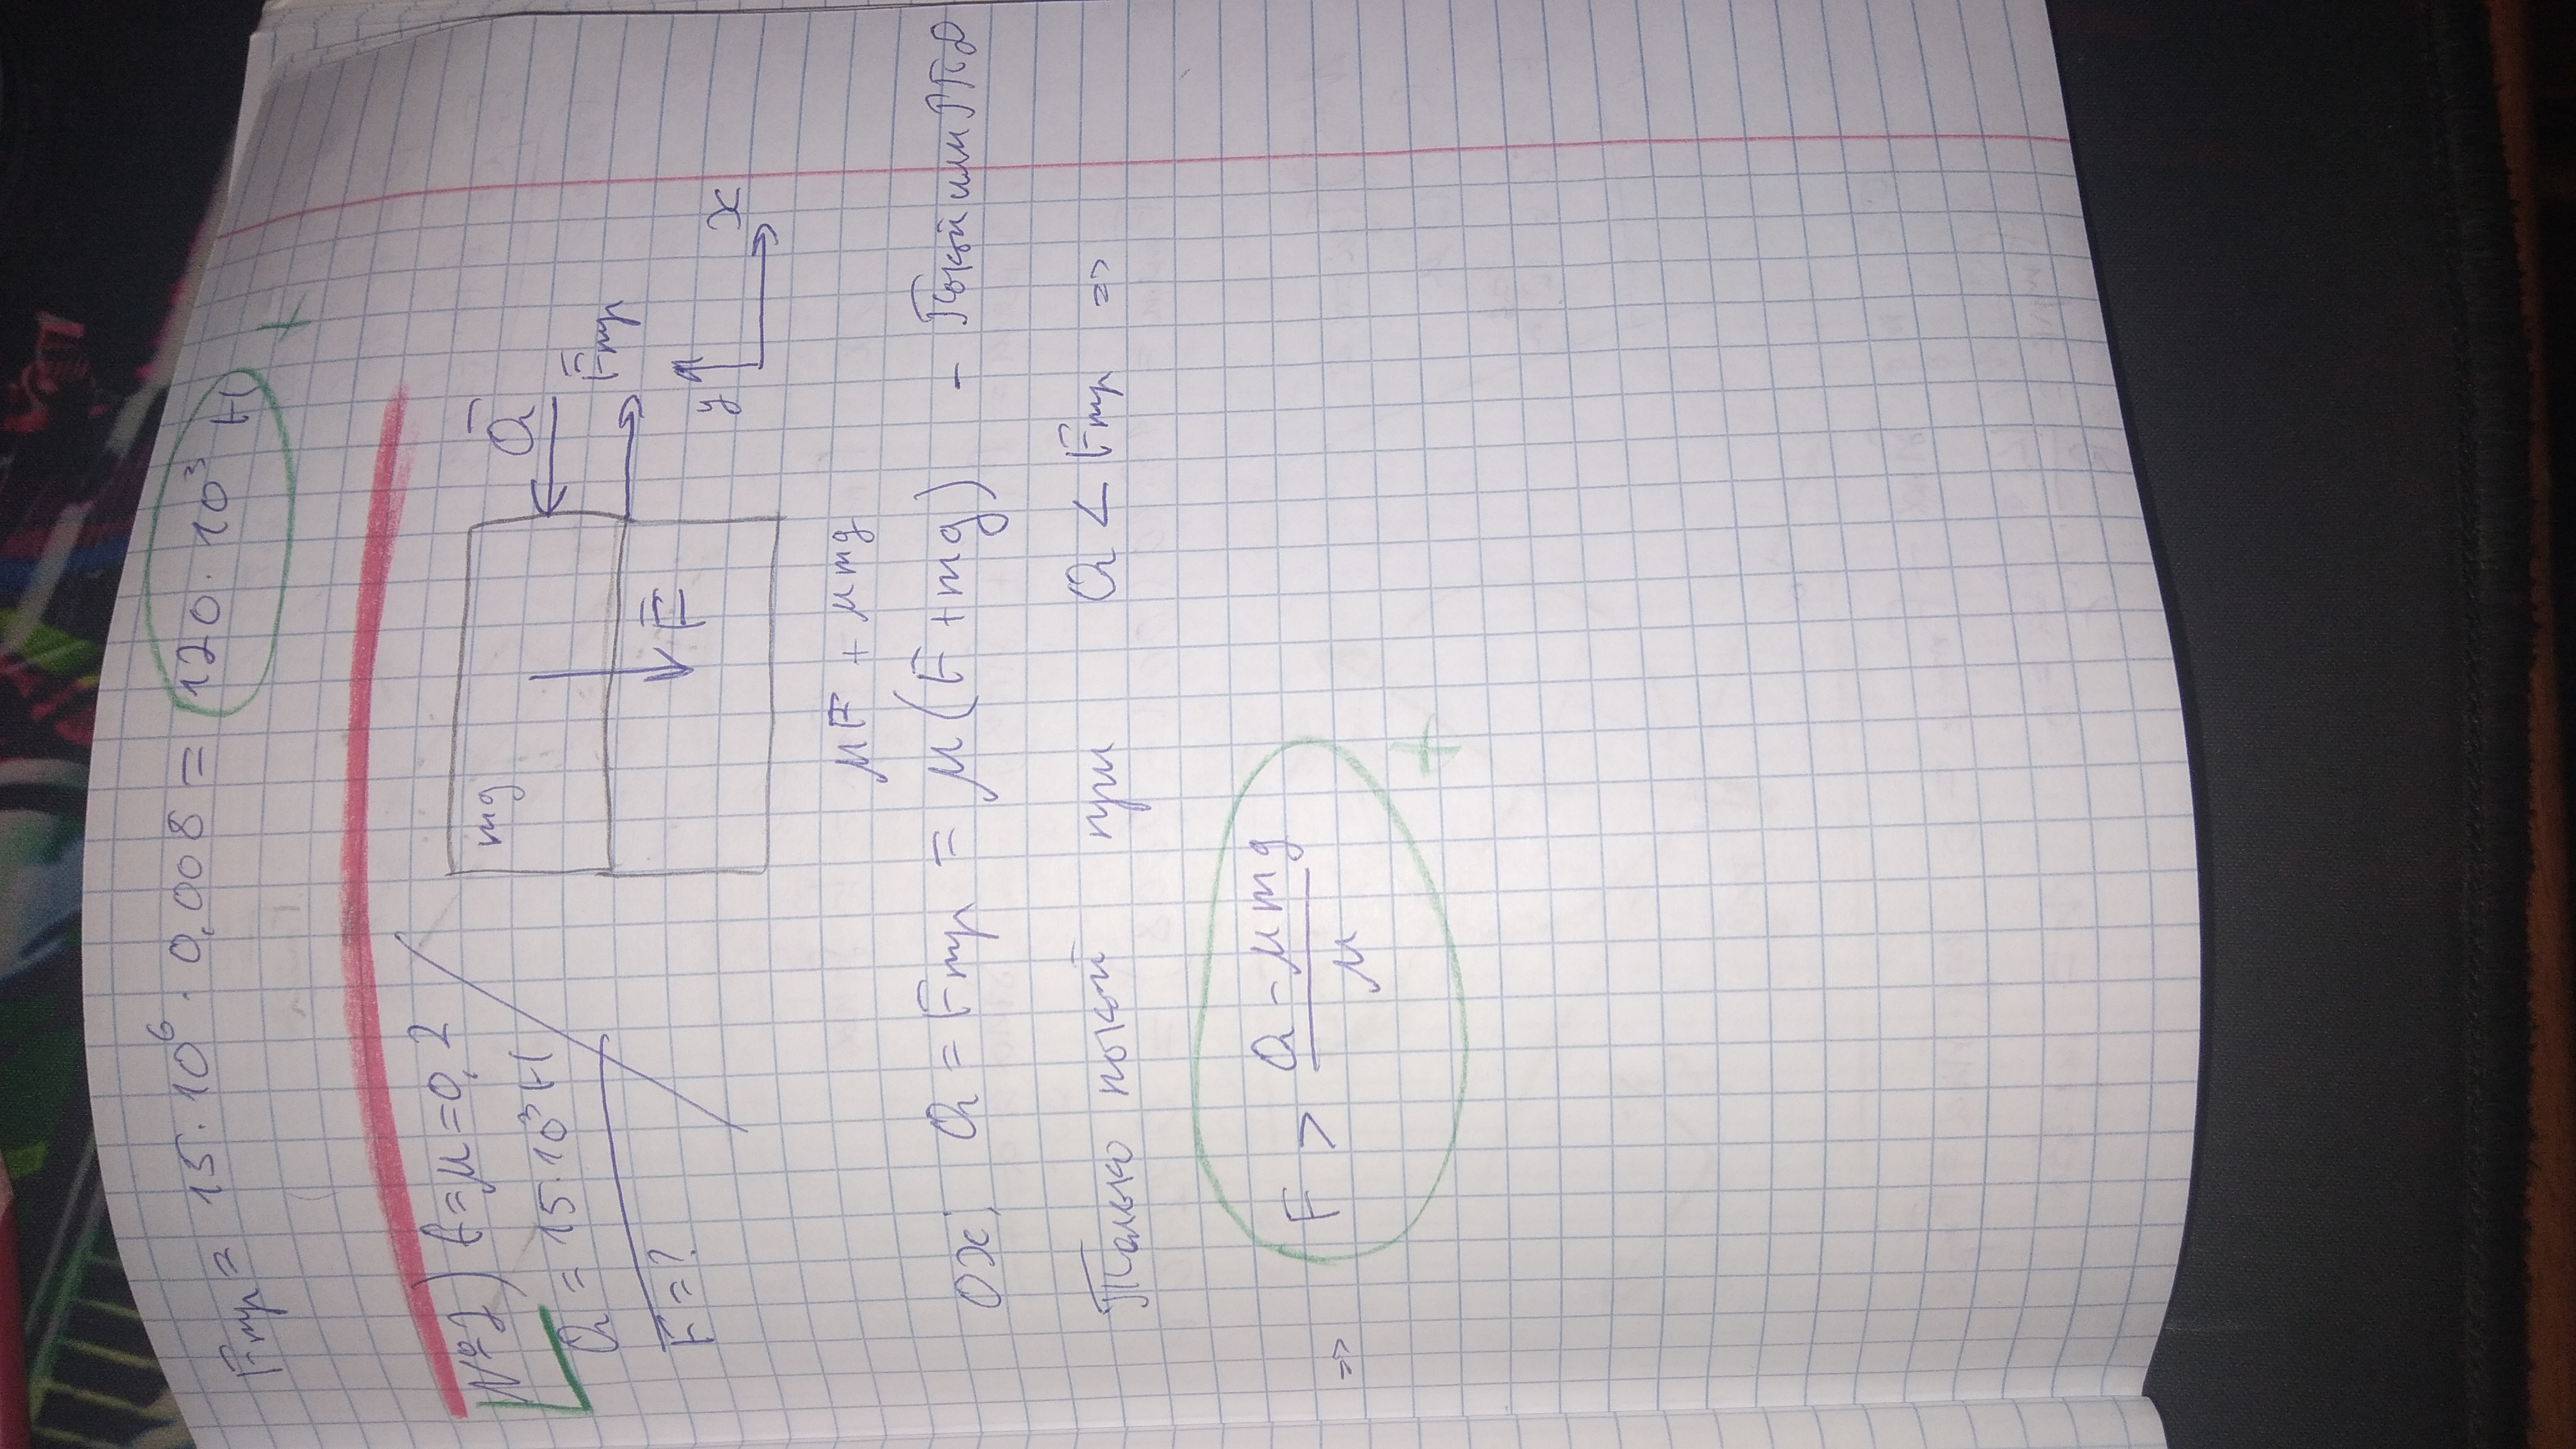 Fтр = 15·10⁶ · 0,008 = 120·10³ Н
+
№2) f=μ=0,2
Q = 15·10³ Н
F=?
mg
Q̄
F̄тр
F̄
y
x
μF + μmg
ОХ: Q = Fтр = μ(F+mg) - Покой или РПД
Только покой при Q < Fтр =>
=> F > (Q - μmg)/μ
+